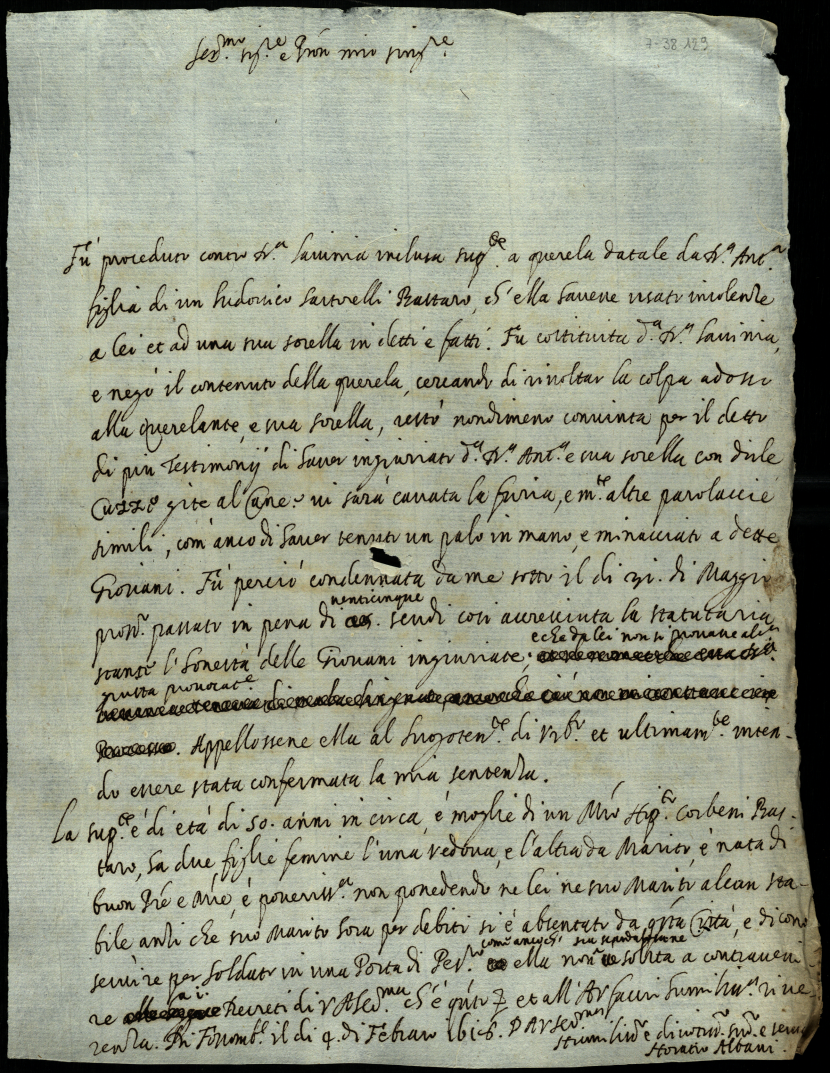 7-38-129
Ser.mo sig.re e Prōn mio sing.re
Fù proceduto contro D.a Lavinia inclusa sup.te a querela datale da D.a Ant.a
figlia di un Ludovico Sartorelli Bastaro, ch'ella havesse usato insolenze
a lei et ad una sua sorella in detti e fatti. Fu costituita d.a D.a Lavinia,
e negò il contenuto della querela, cercando di rivoltar la colpa adosso
alla querelante, e sua sorella, restò nondimeno convinta per il detto
di più Testimonij di haver ingiuriato d.a D.a Ant.a e sua sorella con dirle
gite al Cane, vi sarà cavata la furia, e m.te altre parolaccie
simili, com'anco di haver tenuto un palo in mano, e minacciato a dette
Giovani. Fù perciò condennata da me sotto il dì 31. di Maggio
pross.o passato in pena di venticinque scudi così accresciuta la statutaria
stante l'honestà delle Giovani ingiuriate, e che da lei non si provava
giusta provocat.e
Processo. Appellossene ella al Luogoten.te di Urb.o et ultimam.te inten-
do essere stata confermata la mia sentenza.
La sup.te è di età di 50. anni in circa, è moglie di un M.ro Hip.to Corbeni Bas-
taro, ha due figlie femine l'una vedova, e l'altra da Marito, è nata di
buon Prē e Mrē, è poveriss.a non possedendo ne lei ne suo Marito alcun sta-
bile anzi che suo Marito hora per debiti si è absentato da q̄sta Città, e dicono
servire per soldato in una Porta di Pes.ro ella non è solita a contraveni-
re ai Decreti di V A Ser.ma ch'è q̄nto et all'A V faccio humiliss.a rive-
renza. Di Fossomb.e il dì 4. di Febraro 1618. D A V Ser.ma
Humiliss.e divotiss.o sud.o e serv.e
Horatio Albani.